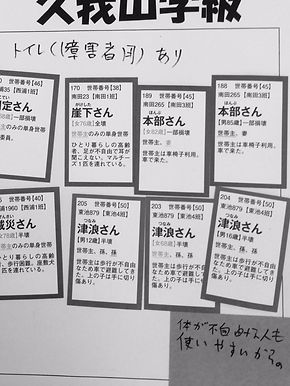 久我山学級
トイレ(障害者用)あり
世帯番号[46]
南田35【西浦1班】
定さん
一部損壊
世帯主のみの単身世帯
170 世帯番号[38]
南田23【南田1班】
がけした
崖下さん
【女76歳】全壊
世帯主のみの単身世帯
ひとり暮らしの高齢者、足が不自由で耳が聞こえない。マルチーズ1匹を連れている。
189 世帯番号[45]
南田265【南田3班】
ほんぶ
本部さん
【女82歳】一部損壊
世帯主、妻
世帯主は車椅子利用。車で来た。
188 世帯番号[45]
南田265【南田3班】
ほんぶ
本部さん
【男85歳】一部損壊
世帯主、妻
世帯主は車椅子利用。車で来た。
世帯番号[40]
1960【西浦2班】
災さん
半壊
世帯主のみの単身世帯
ひとり暮らしの高齢者、歩行困難。座敷犬1匹を連れている。
205 世帯番号[50]
東池879【東池4班】
つなみ
津浪さん
【男12歳】半壊
世帯主、孫、孫
世帯主は歩行が不自由なため車で避難してきた。上の子は手に切り傷あり。
203 世帯番号[50]
東池879【東池4班】
つなみ
津浪さん
【女68歳】半壊
世帯主、孫、孫
世帯主は歩行が不自由なため車で避難してきた。上の子は手に切り傷あり。
204 世帯番号[50]
東池879【東池4班】
つなみ
津浪さん
【男16歳】半壊
世帯主、孫、孫
世帯主は歩行が不自由なため車で避難してきた。上の子は手に切り傷あり。
体が不自由な人も
使いやすいから。